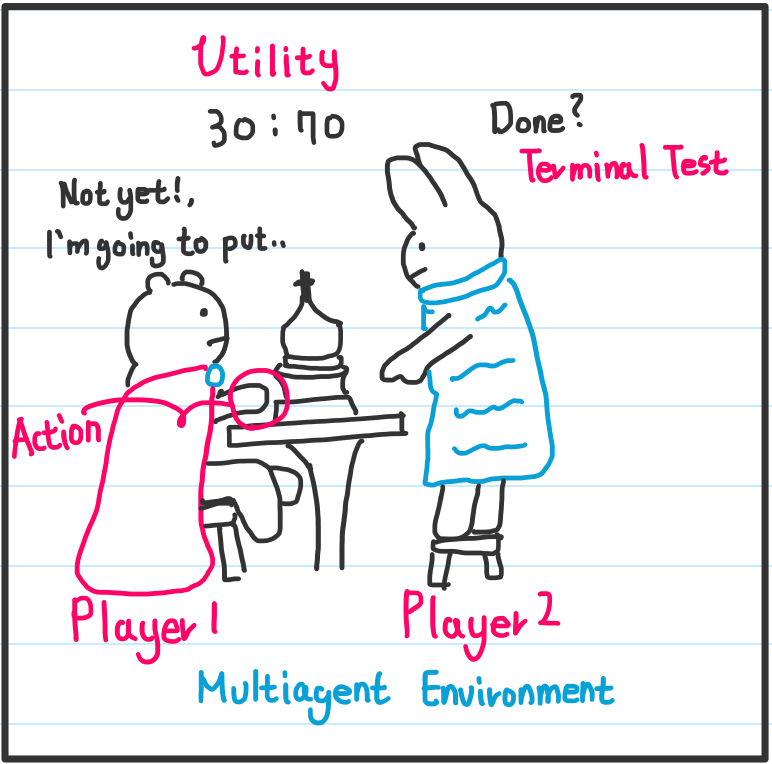 Utility
30 : 70
Done?
Terminal Test
Not yet!,
I'm going to put..
Action
Player 1
Player 2
Multiagent Environment